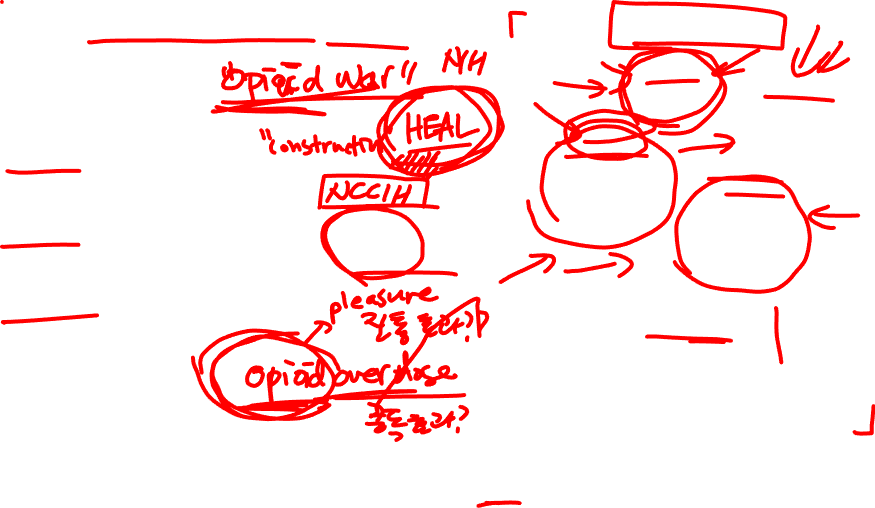 "Opioid War"
NIH
HEAL
"construction
NCCIH
pleasure
진통효과?
Opioid overdose
중독효과?